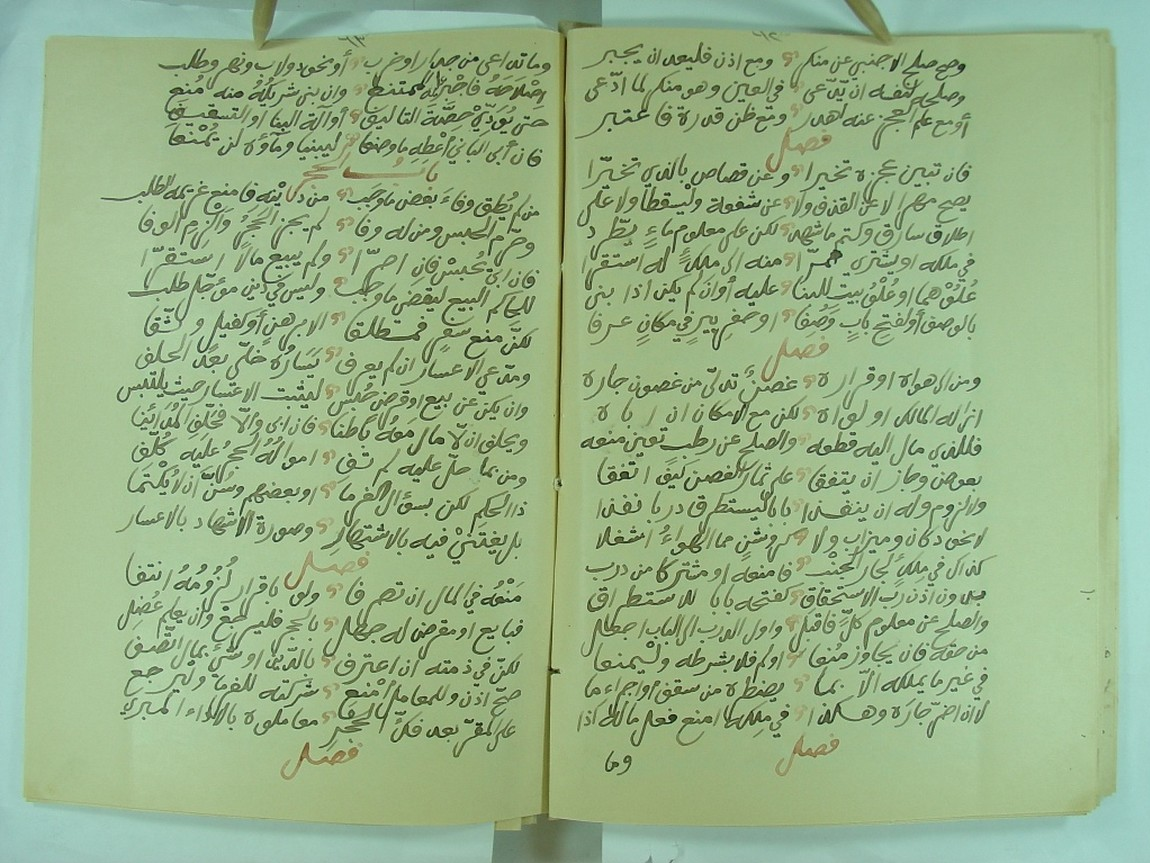 وصح صلح الاجنبي عن منكر ومع اذن فليعد ان يجبر
وصلحه لنفسه ان يدعى في العين وهو منكر لما ادعى
أو مع علم العجز عنه اهدر ومع ظن قدرة قد اعتبر
فصل
فان تبين عجزه تخيرا وعن قصاص بالذي تخيرا
يصح مهرا لا عن القذف ولا عن شفعة وليسقطا ولا على
اطلاق سارق وكتم ما شهد لكن على معلوم ماء يطرد
في ملكه او يشتري ممرا منه الى ملك له استقرا
علو هما او علو بيت للبنا عليه أو ان لم يكن اذا بنى
بالوصف أو لفتح باب وصفا او حفر بير في مكان عرفا
فصل
ومن الى هواه او قراره غصن تدلى من غصون جاره
ازاله المالك او لواه لكن مع الامكان ان اباه
فللذي مال اليه قطعه والصلح عن رطب تعين منعه
بعوض وجاز ان يتفقا على ثمار الغصن كيف اتفقا
ولا لزوم وله ان ينفذا بابا ليستطرق دربا نفذا
لا نحو دكان وميزاب ولا روشن مما الهواء اشغلا
كذاك في ملك لجار الجنب فامنعه او مشتركا من درب
بدون اذن رب الاستحقاق كفتحه بابا للاستطراق
والصلح عن معلوم كل فاقبل واول الدرب الى الباب اجعل
من حقه فان يجاوز منعا او لم فلا بشرطه وليمنعا
في غير ما يملكه الا بما يضطره من سقف او اجراء ما
لا ان اضر جاره وهكذا في ملكه امنع فعل ماله كذا
فصل
وما
وما تداعى من جدار او خرب أو نحو دولاب ونهر وطلب
اصلاحه فاجبر الممتنع وان بنى شركته منه منع
حتى يؤدي حصة التاليف أو آلة البنا او التسقيف
فان أبى الباني أعطه ما وضعا ليبنيا وماؤه لن يمنعا
باب الحجر
من لم يطق وفاء بعض ما وجب من دينه فامنع غريمه الطلب
وحرم الحبس ومن له وفا لم يجز الحجر والزم الوفا
فان ابى يحبس فان اصرا ولم يبع مالا استقرا
للحاكم البيع ليقض ما وجب وليس في دين مؤجل طلب
لكن منع سفر فمطلقا الا برهن أو كفيل وثقا
ومدعي الاعسار ان لم يعرف يساره خلي بعد الحلف
وان يكن عن بيع او قرض حبس ليثبت الاعسار حيث يلتبس
ويحلف ان لا مال معه باطنا فان ابى والا فحلف المداينا
ومن بما حل عليه لم تف امواله الحجر عليه كلف
ذا الحاكم لكن بسؤال الغرما او بعضهم وسن ان لا يكتما
بل يعتني فيه بالاشتهار وصورة الاشهاد بالاعسار
فصل
منعه في المال ان تصرفا ولو باقرار لزومه انتفا
فبايع او مقرض له جهل بالحجر فليرجع وان يعلم عضل
لكن في ذمته ان اعترف بالدين او شيء بمال اتصف
صح اذن وللمعامل امنع شركته للغرما وليرجع
على المقر بعد فك الحجر معاملوه بالاداء المبري
فصل